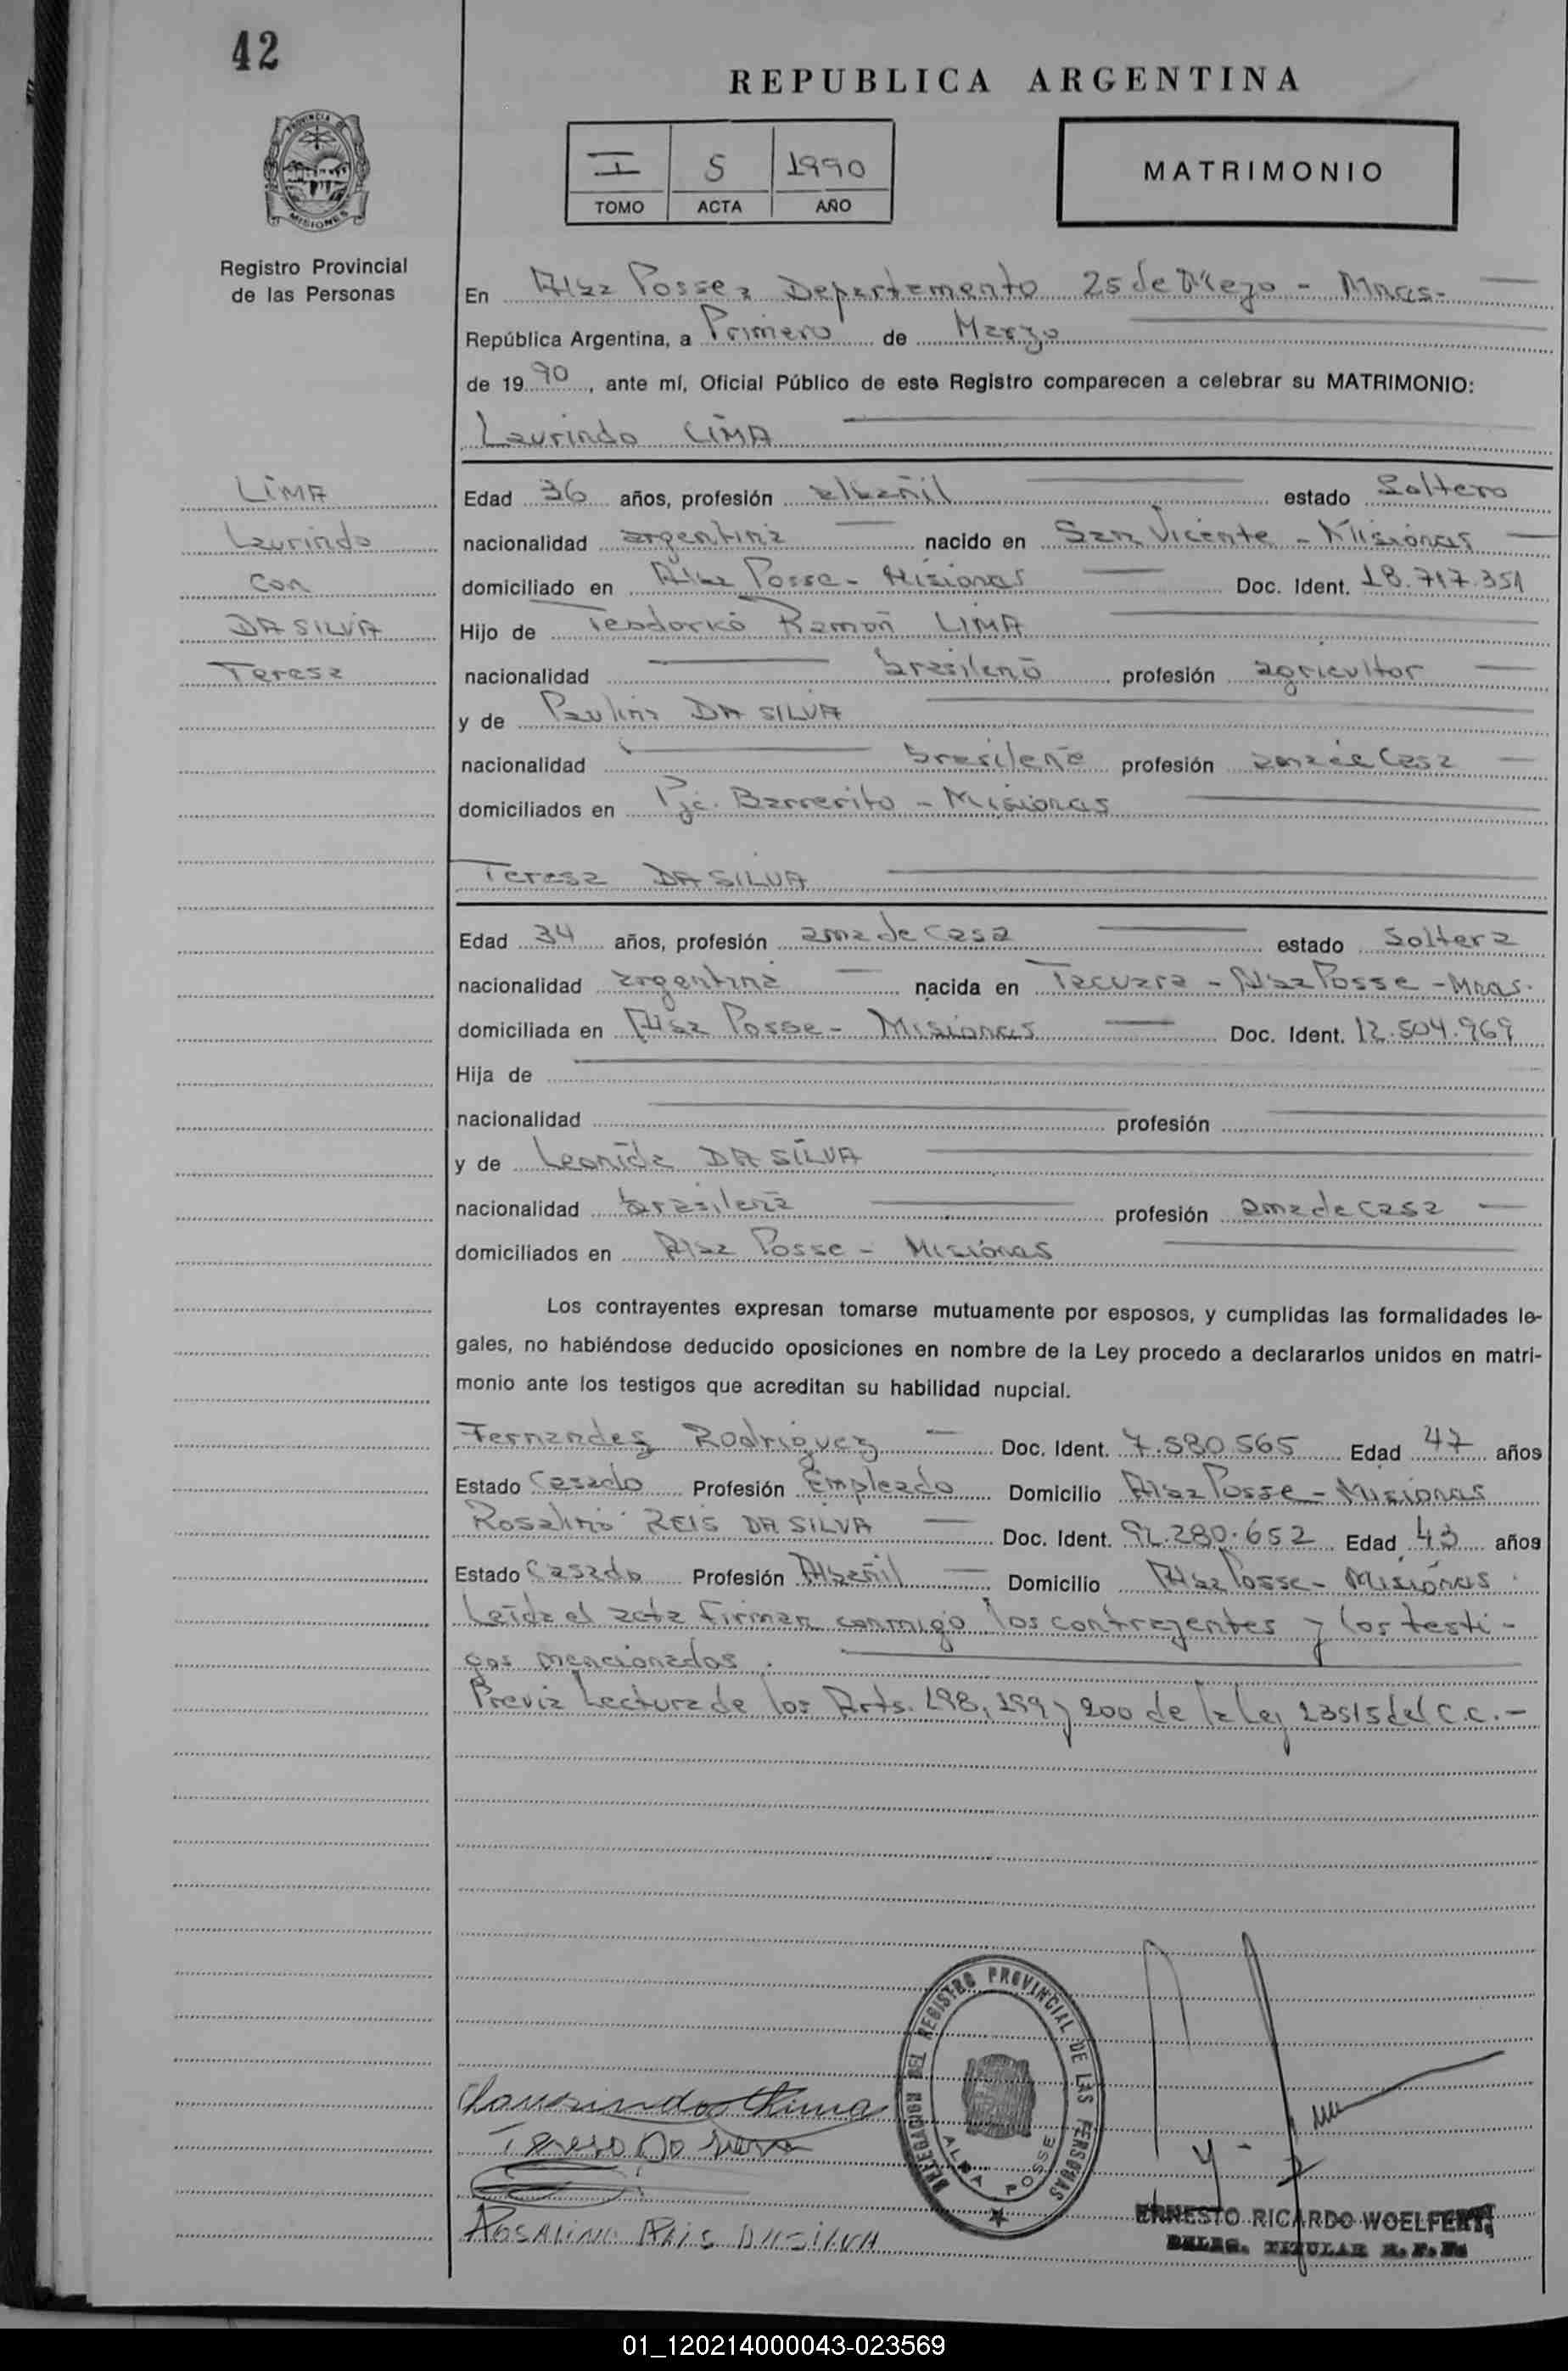 42
REPUBLICA ARGENTINA
I 5 1990
TOMO ACTA AÑO
MATRIMONIO
PROVINCIA DE
MISIONES
Registro Provincial
de las Personas
En Alba Posse, Departamento 25 de Mayo - Mnes.-
República Argentina, a Primero de Marzo
de 1990, ante mí, Oficial Público de este Registro comparecen a celebrar su MATRIMONIO:
Laurindo LIMA
LIMA
Laurindo
con
DA SILVA
Teresa
Edad 36 años, profesión albañil estado Soltero
nacionalidad argentina nacido en San Vicente - Misiones
domiciliado en Alba Posse - Misiones Doc. Ident. 18.717.351
Hijo de Teodorko Ramón LIMA
nacionalidad brasileño profesión agricultor
y de Paulina DA SILVA
nacionalidad brasileña profesión ama de casa
domiciliados en Pje. Barrerito - Misiones
Teresa DA SILVA
Edad 34 años, profesión ama de casa estado Soltera
nacionalidad argentina nacida en Tacuara - Alba Posse - Mnes.
domiciliada en Alba Posse - Misiones Doc. Ident. 12.504.969
Hija de
nacionalidad profesión
y de Leonida DA SILVA
nacionalidad brasilera profesión ama de casa
domiciliados en Alba Posse - Misiones
Los contrayentes expresan tomarse mutuamente por esposos, y cumplidas las formalidades le-
gales, no habiéndose deducido oposiciones en nombre de la Ley procedo a declararlos unidos en matri-
monio ante los testigos que acreditan su habilidad nupcial.
Fernandez Rodriguez Doc. Ident. 7.580.565 Edad 47 años
Estado Casado Profesión Empleado Domicilio Alba Posse - Misiones
Rosalino REIS DA SILVA Doc. Ident. 92.280.652 Edad 43 años
Estado Casado Profesión Albañil Domicilio Alba Posse - Misiones
Leída el acta firman conmigo los contrayentes y los testi-
gos mencionados.
Previa Lectura de los Arts. 198, 199 y 200 de la Ley 23515 del C.C.-
DELEGACION DEL REGISTRO PROVINCIAL DE LAS PERSONAS
ALBA POSSE
ROSALINO REIS DA SILVA
ERNESTO RICARDO WOELFERT
DELEG. TITULAR R. P. P.
01_120214000043-023569